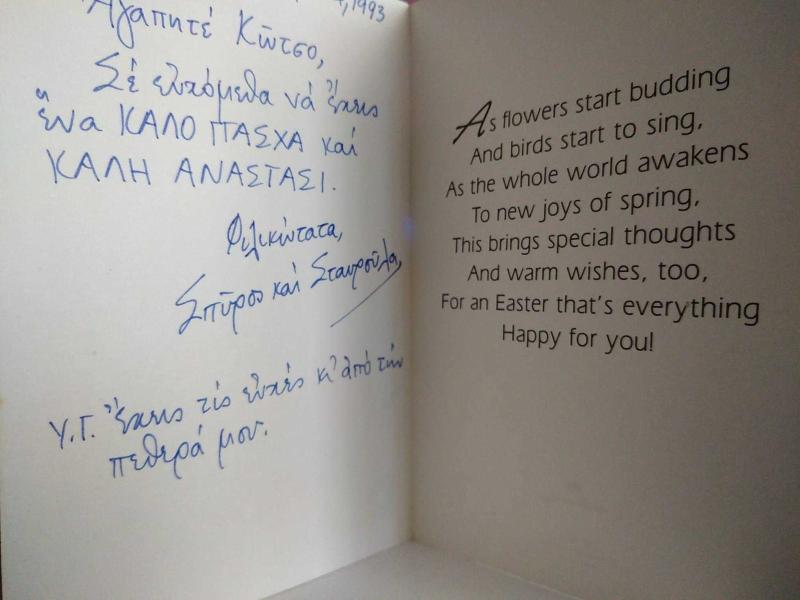 ,1993
Ἀγαπητέ Κῶτσο,
Σέ εὐχόμεθα νά ἔχεις
ἕνα ΚΑΛΟ ΠΑΣΧΑ καί
ΚΑΛΗ ΑΝΑΣΤΑΣΙ.
Φιλικώτατα,
Σπῦρος καί Σταυροῦλα
Υ.Γ. Ἔχεις τίς εὐχές κι' ἀπό τήν
πεθερά μου.
As flowers start budding
And birds start to sing,
As the whole world awakens
To new joys of spring,
This brings special thoughts
And warm wishes, too,
For an Easter that's everything
Happy for you!